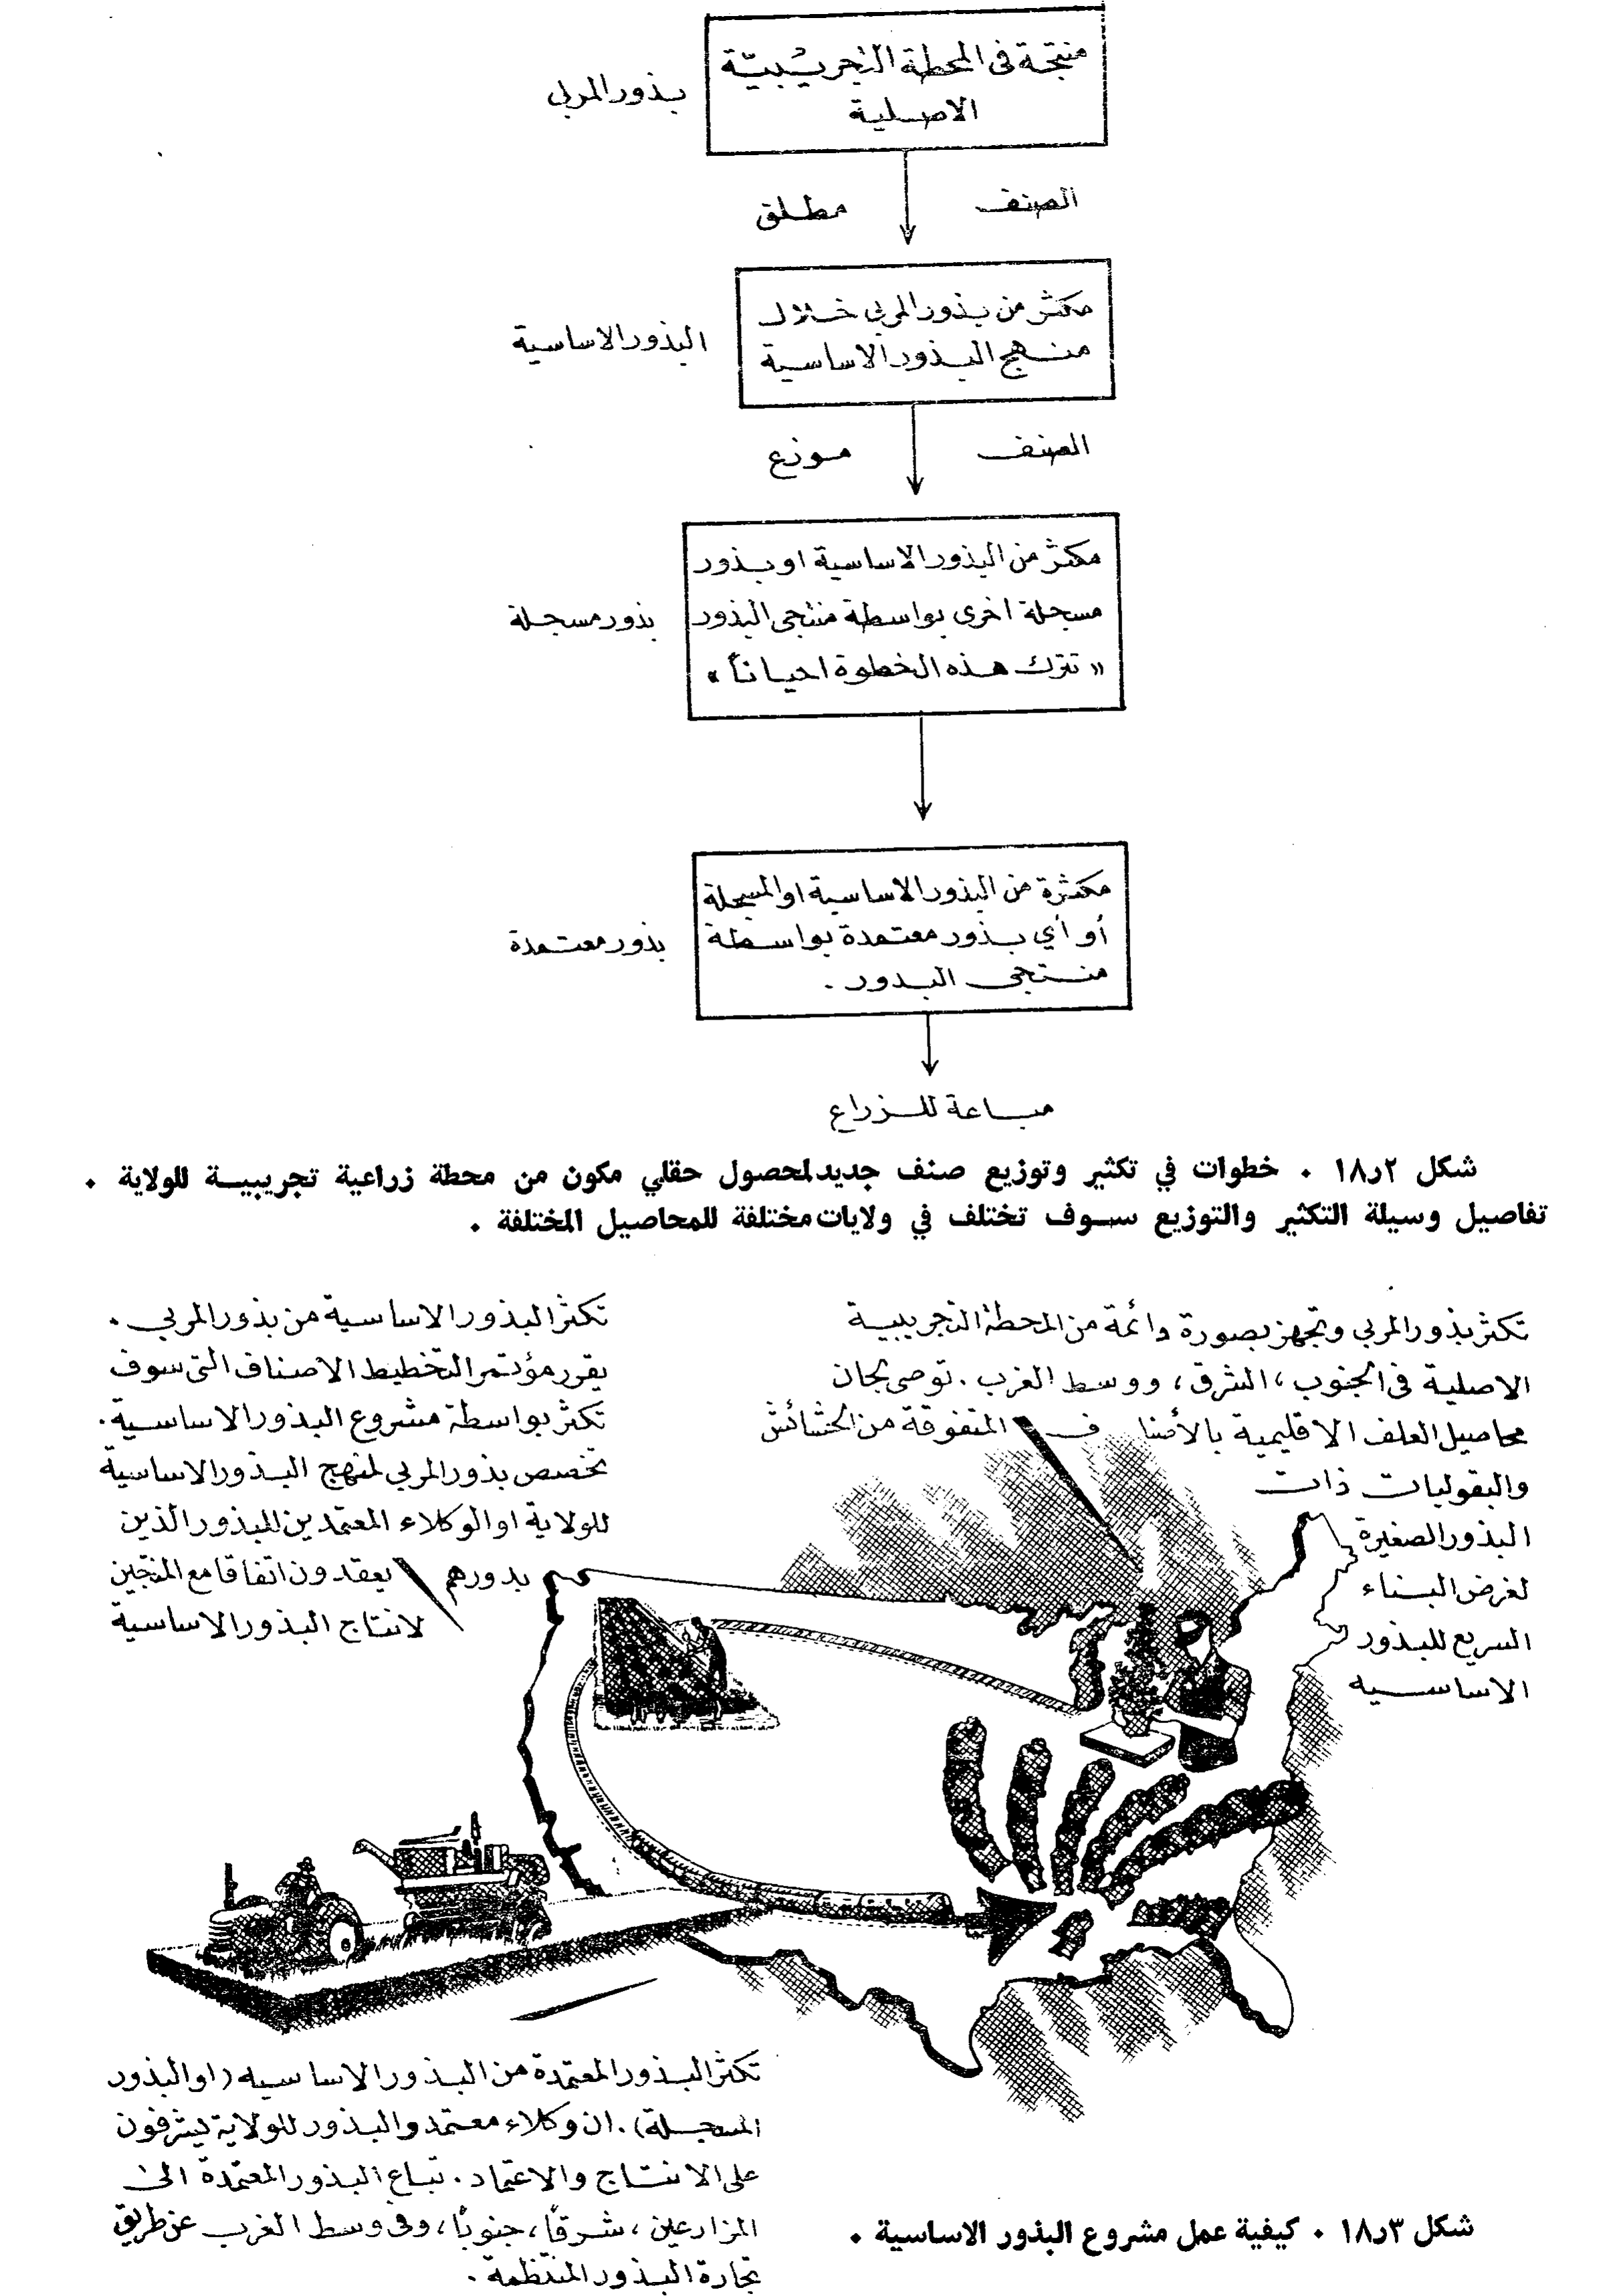 منتجة في المحطة التجريبية
الاصلية
بذور المربي
الصنف مطلق
مكثر من بذور المربي خلال
منهج البذور الاساسية
البذور الاساسية
الصنف موزع
مكثر من البذور الاساسية او بذور
مسجلة اخرى بواسطة منتجي البذور
« تترك هذه الخطوة احياناً »
بذور مسجلة
مكثرة من البذور الاساسية او المسجلة
أو أي بذور معتمدة بواسطة
منتجي البذور .
بذور معتمدة
مباعة للزراع
شكل ٢ر١٨ ٠ خطوات في تكثير وتوزيع صنف جديد لمحصول حقلي مكون من محطة زراعية تجريبية للولاية ٠
تفاصيل وسيلة التكثير والتوزيع سوف تختلف في ولايات مختلفة للمحاصيل المختلفة ٠
تكثر بذور المربي وتجهز بصورة دائمة من المحطة التجريبية
الاصلية في الجنوب ، الشرق ، ووسط الغرب . توصي لجان
محاصيل العلف الاقليمية بالأصناف المتفوقة من الحشائش
والبقوليات ذات
البذور الصغيرة
لغرض البناء
السريع للبذور
الاساسيه
تكثر البذور الاساسية من بذور المربي .
يقرر مؤتمر التخطيط الاصناف التي سوف
تكثر بواسطة مشروع البذور الاساسية .
تخصص بذور المربي لمنهج البذور الاساسية
للولاية او الوكلاء المعتمدين للبذور الذين
بدورهم يعقدون اتفاقا مع المنتجين
لانتاج البذور الاساسية
تكثر البذور المعتمدة من البذور الاساسيه (او البذور
المسجلة) . ان وكلاء معتمدو البذور للولاية يشرفون
على الانتاج والاعتماد . تباع البذور المعتمدة الى
المزارعين ، شرقاً ، جنوباً ، وفي وسط الغرب عن طريق
تجارة البذور المنتظمة .
شكل ٣ر١٨ ٠ كيفية عمل مشروع البذور الاساسية ٠